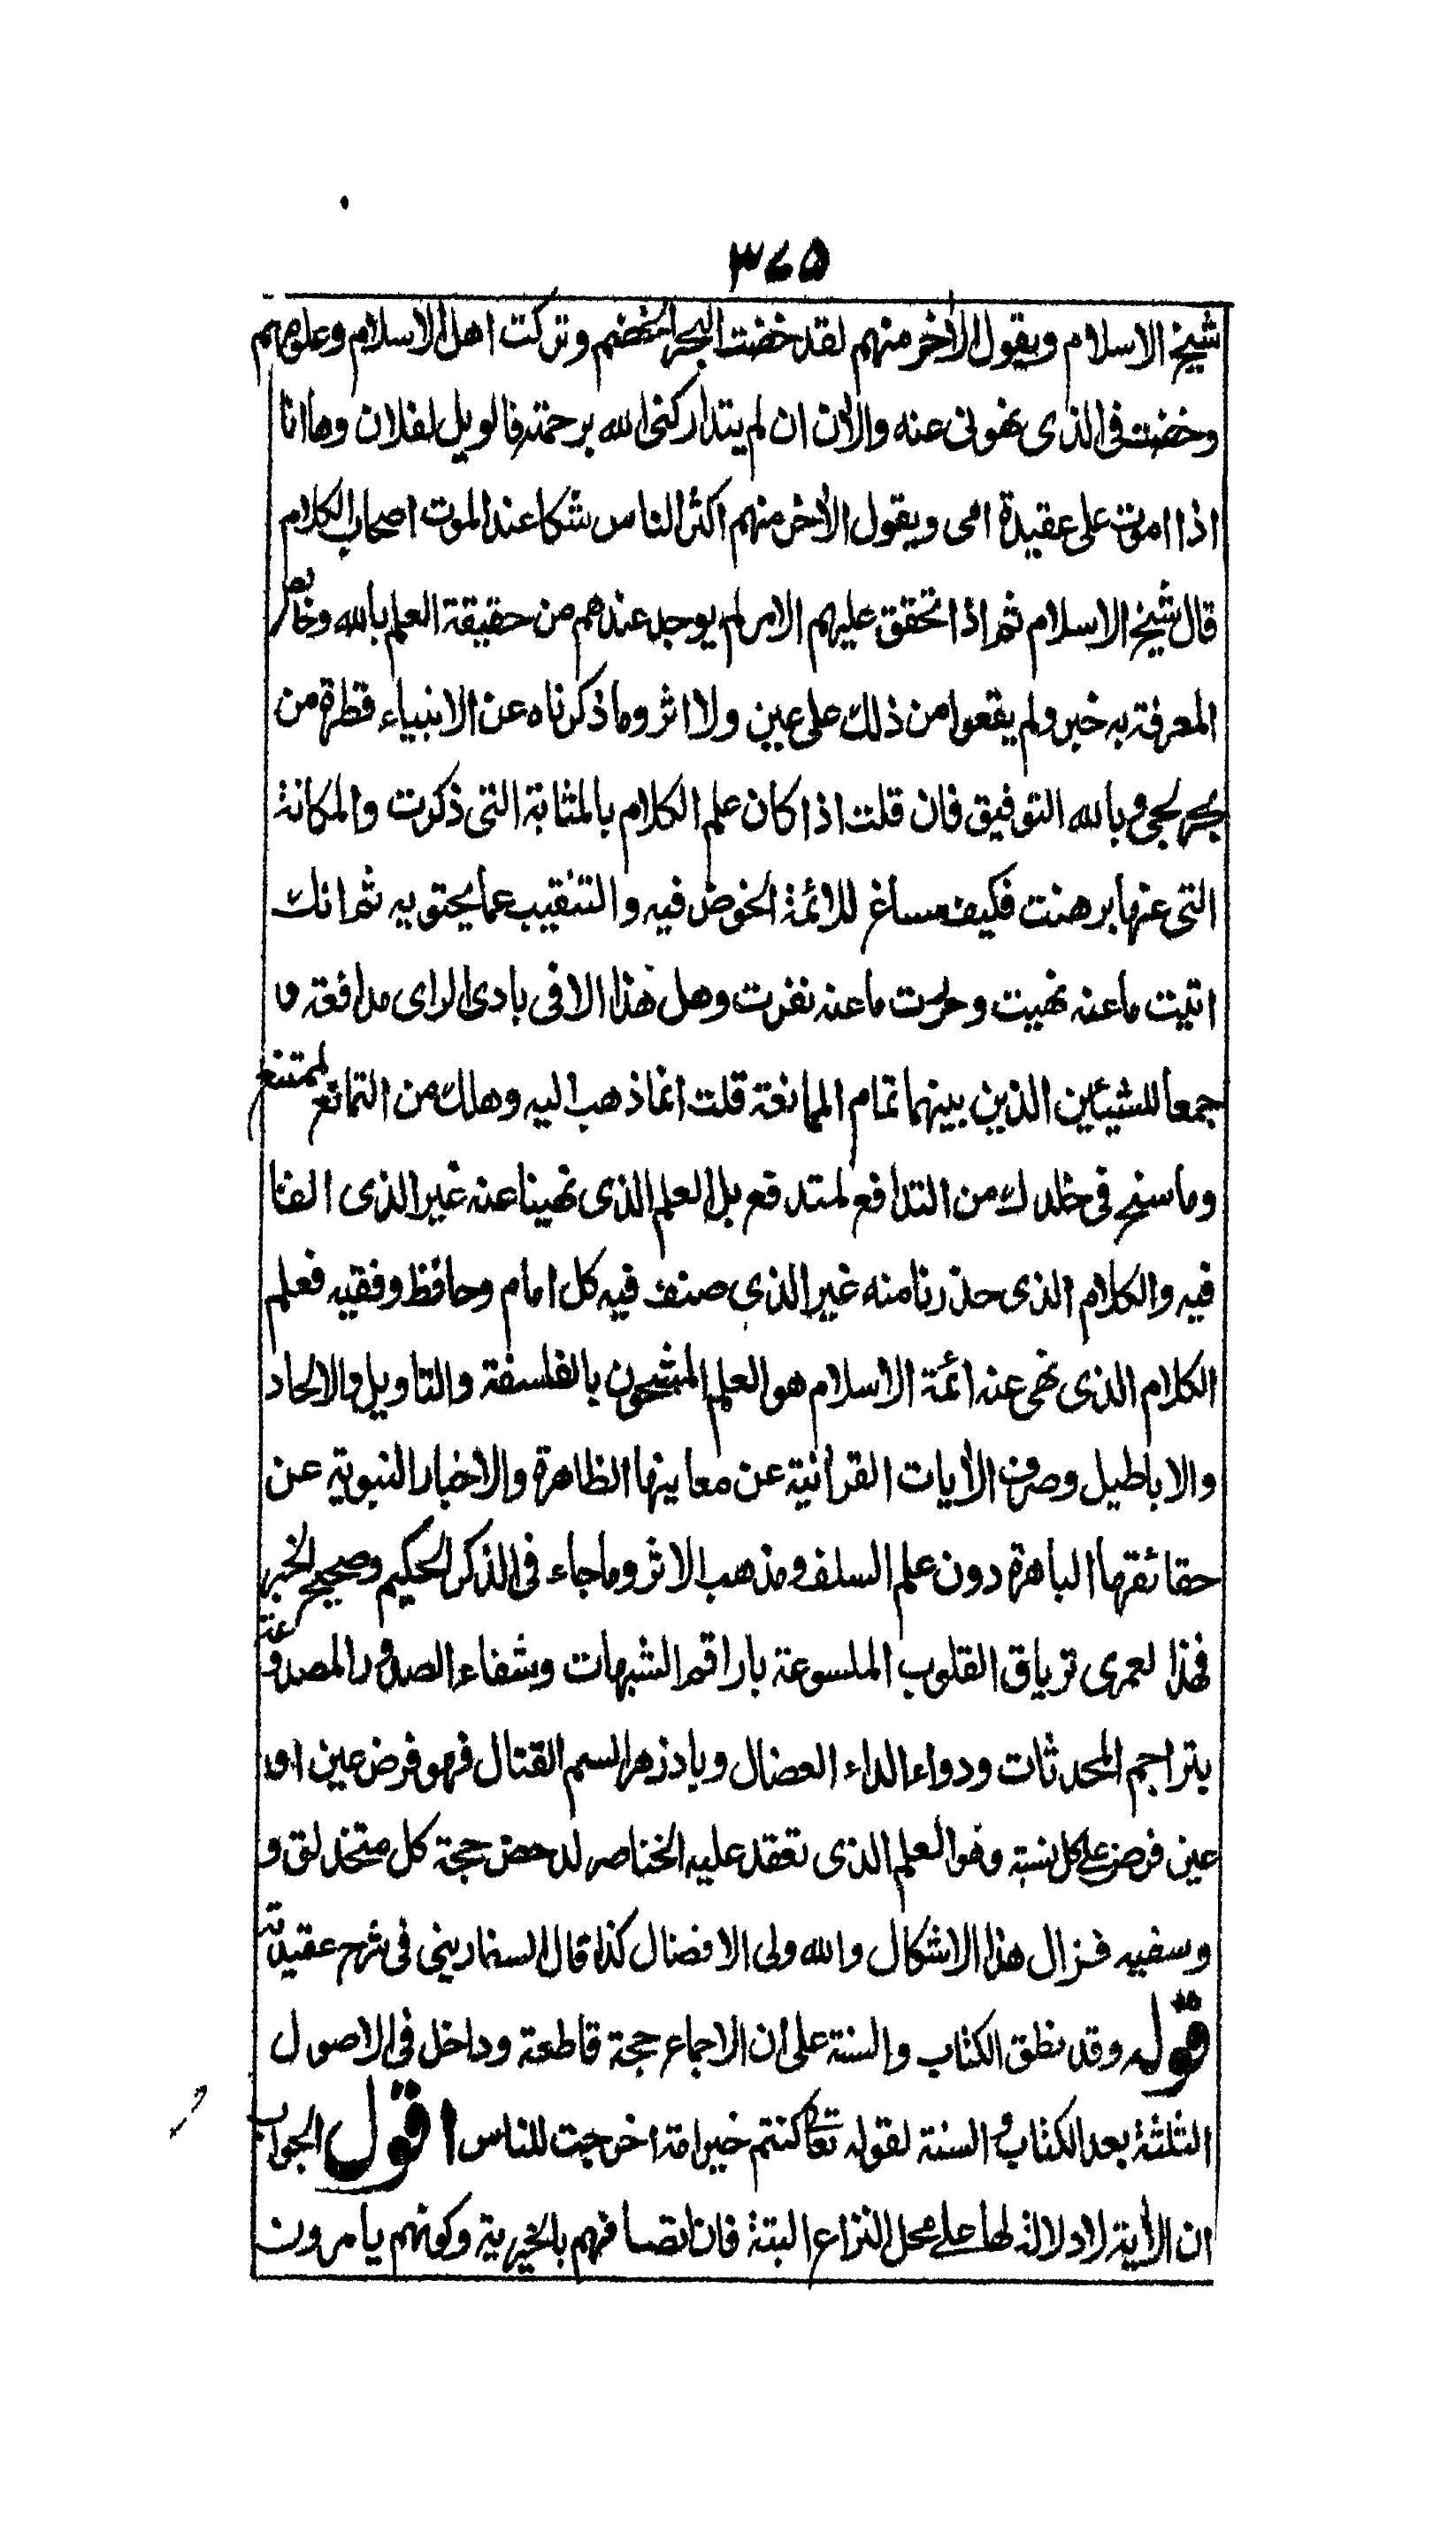 ٣٧٥
شيخ الاسلام ويقول الأخر منهم لقد خضت البحر الخضم وتركت اهل الاسلام وعلومهم
وخضت فى الذى نهونى عنه والأن ان لم يتداركنى الله برحمته فالويل لفلان وها انا
اذا اموت على عقيدة امى ويقول الأخر منهم اكثر الناس شكا عند الموت اصحاب الكلام
قال شيخ الاسلام ثم اذا تحقق عليهم الامر لم يوجد عندهم من حقيقة العلم بالله وخالص
المعرفة به خبر ولم يقعوا من ذلك على عين ولا اثر وما ذكرناه عن الانبياء قطرة من
بحر لجى وبالله التوفيق فان قلت اذا كان علم الكلام بالمثابة التى ذكرت والمكانة
التى عنها برهنت فكيف مساغ للائمة الخوض فيه والتنقيب عما يحتويه ثم انك
اتيت ما عنه نهيت وحررت ما عنه نفرت وهل هذا الا فى بادئ الراى مدافعة و
جمعا للشيئين الذين بينهما تمام الممانعة قلت انما ذهب اليه وهلك من التمانع لممتنع
وما سنح فى خلدك من التدافع لمندفع بل العلم الذى نهينا عنه غير الذى الفنا
فيه والكلام الذى حذرنا منه غير الذى صنف فيه كل امام وحافظ وفقيه فعلم
الكلام الذى نهى عنه ائمة الاسلام هو العلم المشحون بالفلسفة والتاويل والالحاد
والاباطيل وصرف الأيات القرانية عن معانيها الظاهرة والاخبار النبوية عن
حقائقها الباهرة دون علم السلف ومذهب الاثر وما جاء فى الذكر الحكيم وصحيح الخبر
فهذا لعمرى ترياق القلوب الملسوعة باراقم الشبهات وشفاء الصدور المصدوعة
بتراجم المحدثات ودواء الداء العضال وبادزهر السم القتال فهو فرض عين او
عين فرض على كل نسبة وهو العلم الذى تعقد عليه الخناصر لدحض حجة كل متحذلق و
وسفيه فزال هذا الاشكال والله ولى الافضال كذا قال السفارينى فى شرح عقيدته
قوله وقد نطق الكتاب والسنة على ان الاجماع حجة قاطعة وداخل فى الاصول
الثلثة بعد الكتاب والسنة لقوله تعالى كنتم خير امة اخرجت للناس اقول الجواب
ان الأية لا دلالة لها على محل النزاع البتة فان اتصافهم بالخيرية وكونهم يامرون